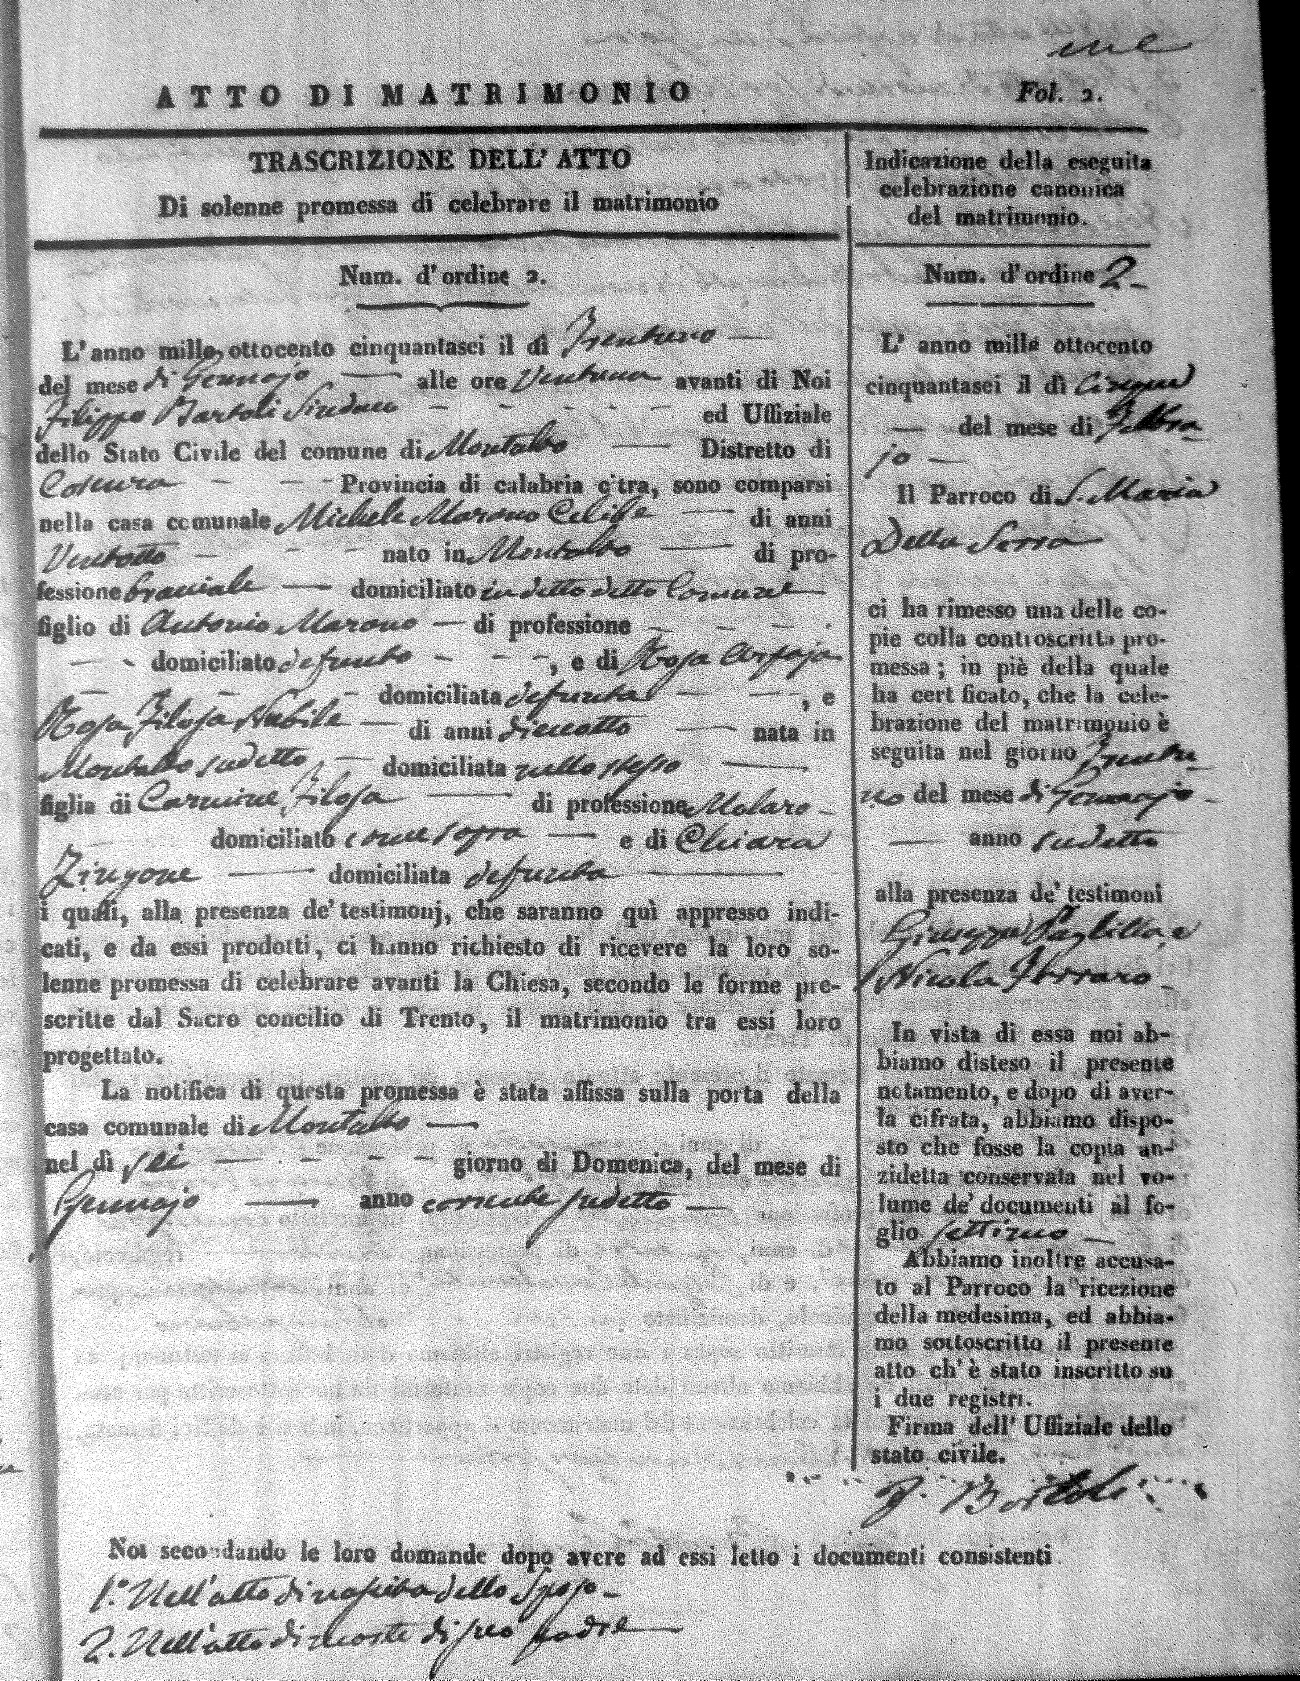 ATTO DI MATRIMONIO
Fol. 2.
TRASCRIZIONE DELL' ATTO
Di solenne promessa di celebrare il matrimonio
Num. d'ordine 2.
L'anno mille ottocento cinquantasei il dì Trentuno
del mese di Gennajo alle ore Ventuna avanti di Noi
Filippo Bartoli Sindaco ed Uffiziale
dello Stato Civile del comune di Montalto Distretto di
Cosenza Provincia di calabria citra, sono comparsi
nella casa comunale Michele Marono di anni
Ventotto nato in Montalto di pro-
fessione bracciale domiciliato in detto detto Comune
figlio di Antonio Marono di professione
domiciliato defunto , e di Rosa
domiciliata defunta , e
Rosa Filosa Nubile di anni dieciotto nata in
Montalto sudetto domiciliata nello stesso
figlia di Carmine Filosa di professione Molaro
domiciliato come sopra e di Chiara
Zingone domiciliata defunta
i quali, alla presenza de' testimonj, che saranno quì appresso indi-
cati, e da essi prodotti, ci hanno richiesto di ricevere la loro so-
lenne promessa di celebrare avanti la Chiesa, secondo le forme pre-
scritte dal Sacro concilio di Trento, il matrimonio tra essi loro
progettato.
La notifica di questa promessa è stata affissa sulla porta della
casa comunale di Montalto
nel dì sei giorno di Domenica, del mese di
Gennajo anno corrente sudetto
Indicazione della eseguita
celebrazione canonica
del matrimonio.
Num. d'ordine 2
L' anno mille ottocento
cinquantasei il dì Cinque
del mese di Febbra
jo
Il Parroco di S. Maria
Della Serra
ci ha rimesso una delle co-
pie colla controscritta pro-
messa; in piè della quale
ha certificato, che la cele-
brazione del matrimonio è
seguita nel giorno Trentu
no del mese di Gennajo
anno sudetto
alla presenza de' testimoni
Giuseppe Paglilla, e
Nicola Ferraro
In vista di essa noi ab-
biamo disteso il presente
notamento, e dopo di aver-
la cifrata, abbiamo dispo-
sto che fosse la copia an-
zidetta conservata nel vo-
lume de' documenti al fo-
glio settimo
Abbiamo inoltre accusa-
to al Parroco la ricezione
della medesima, ed abbia-
mo sottoscritto il presente
atto ch' è stato inscritto su
i due registri.
Firma dell' Uffiziale dello
stato civile.
F. Bartoli
Noi secondando le loro domande dopo avere ad essi letto i documenti consistenti
1.° Nell'atto di nascita dello Sposo
2. Nell'atto di morte di suo padre